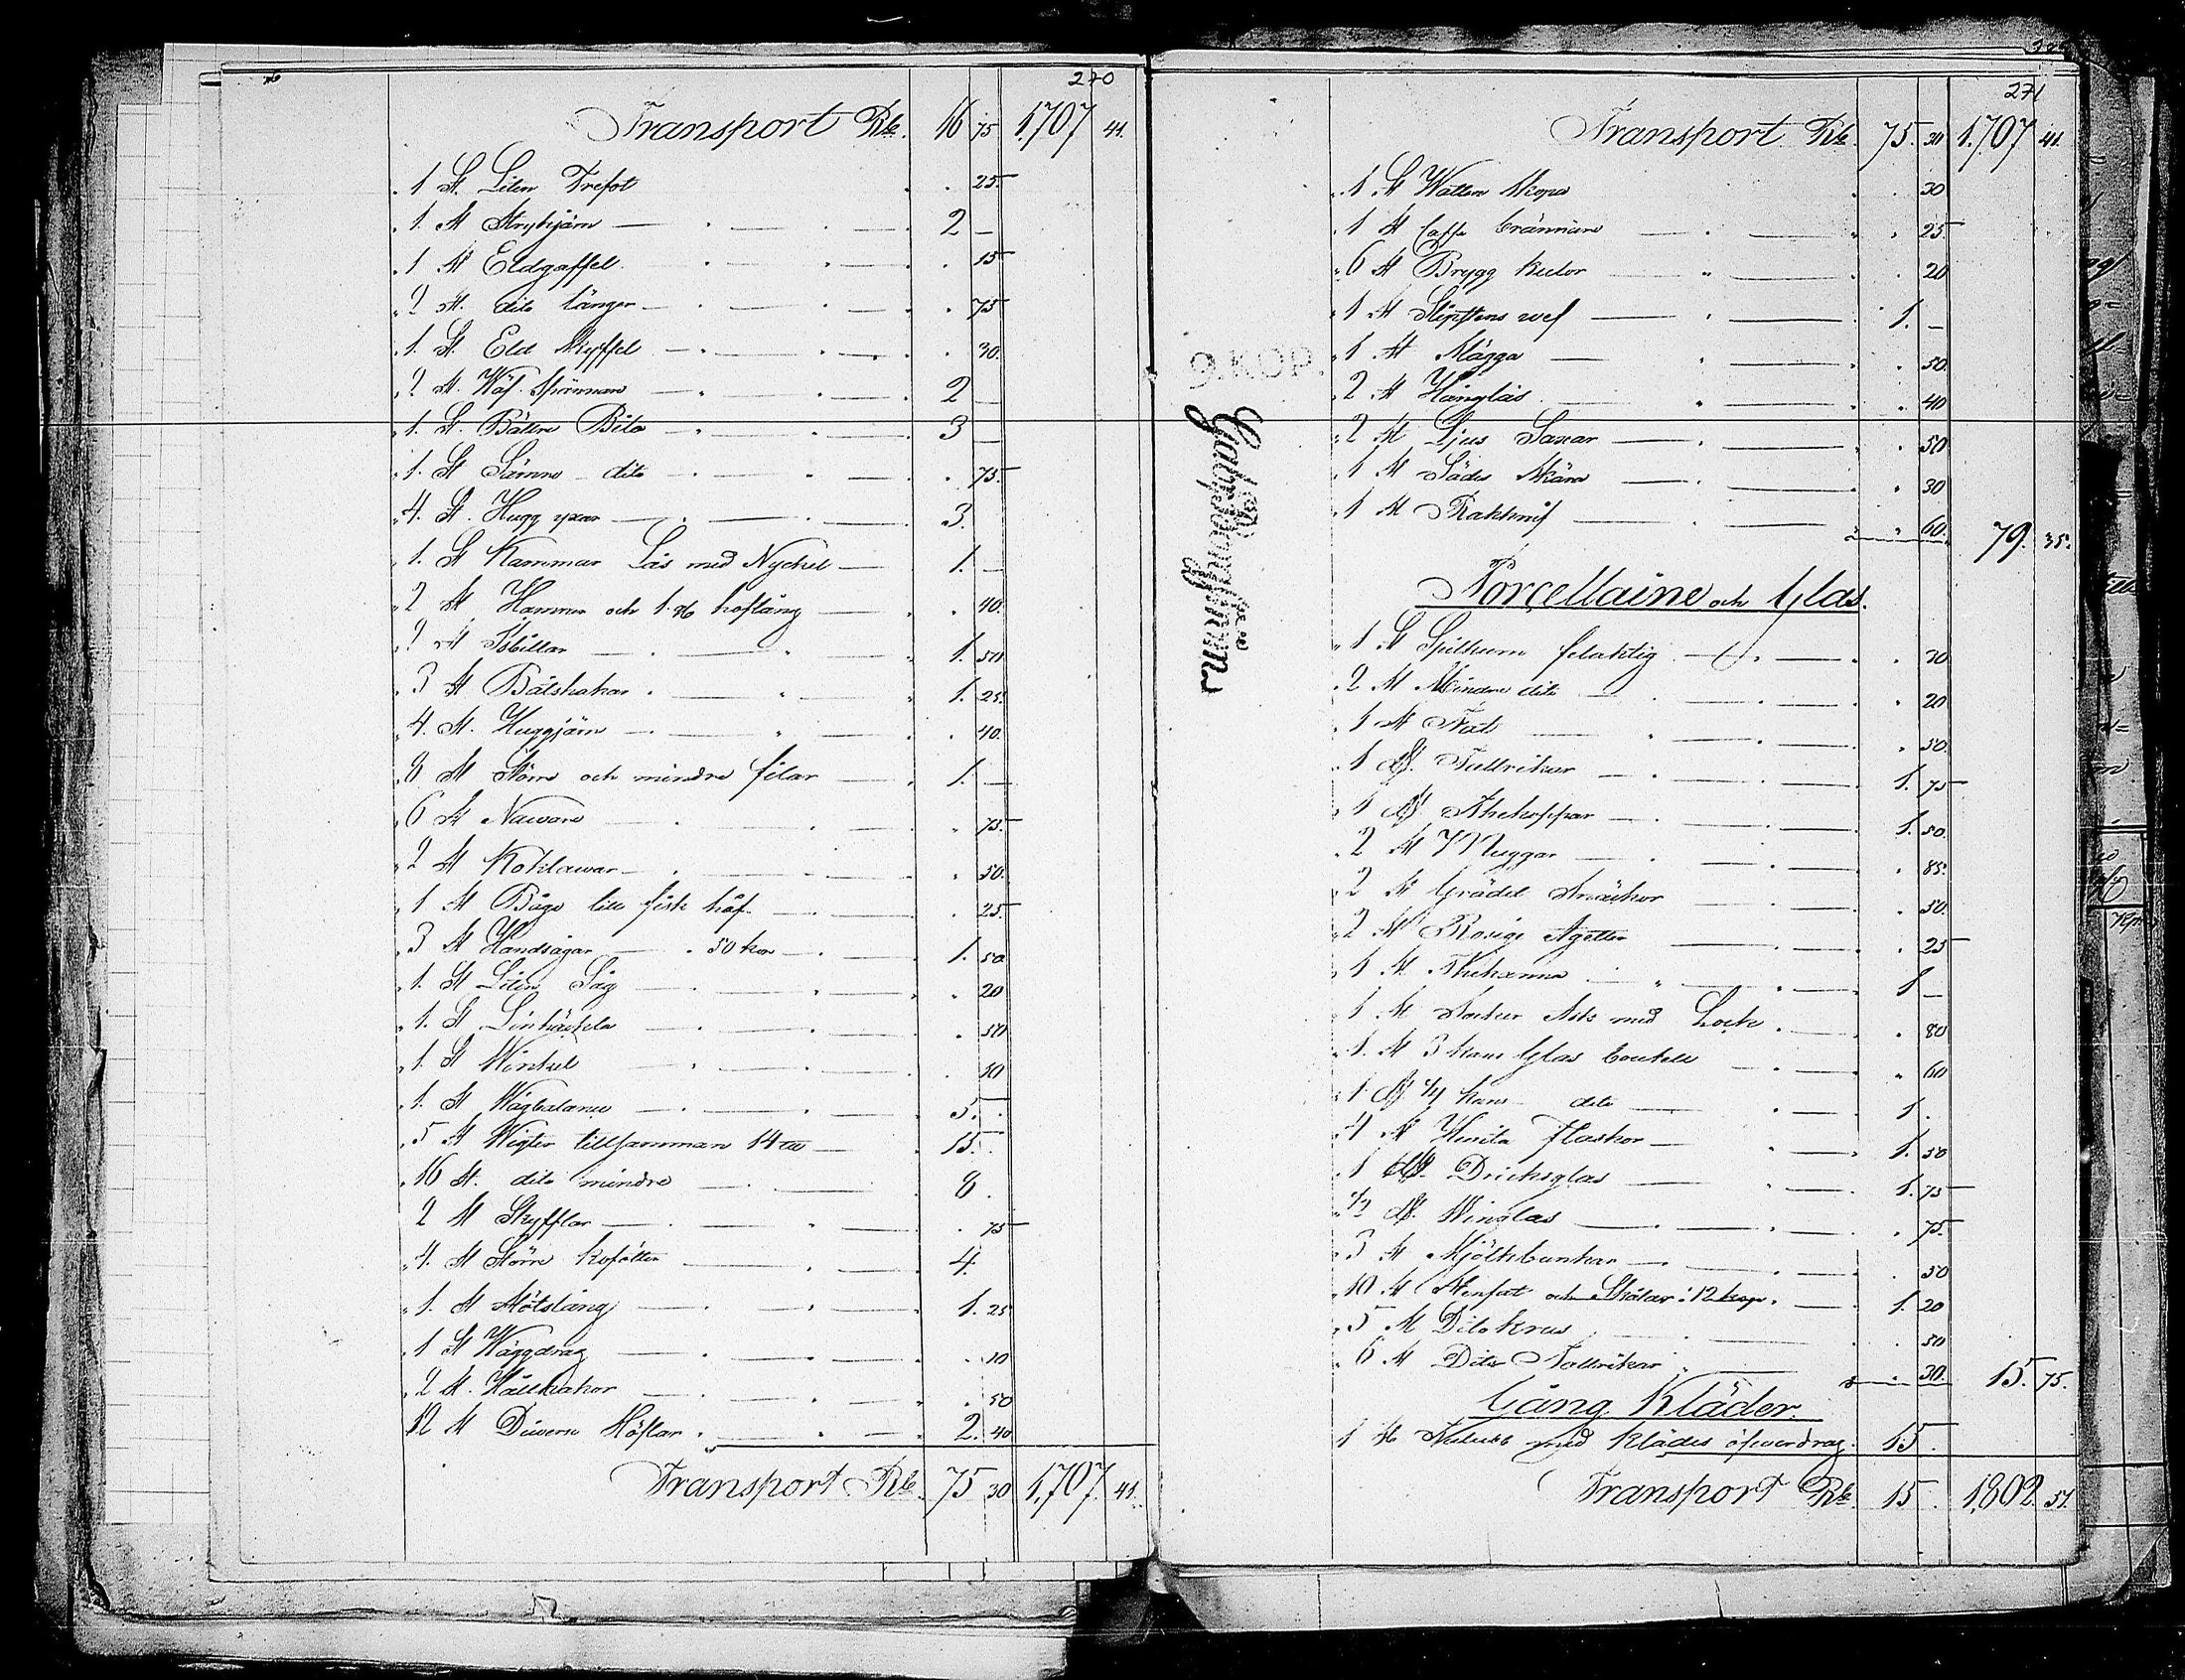 270
Transport Rbl. 16 75 1,707 41.
1 St. Liten Trefot 25.
1. St Strykjärn 2 —
1 St Eldgaffel 15
2 St. dito länger 75
1. St. Eld skyffel 30.
2 St. Wäf Spännare 2 —
1. St. Bättre Bila 3 —
1. St Sämre dito 75.
4. St. Hugg yxar 3.
1. St Kammar Lås med Nyckel 1. —
2 St Hamrar och 1. st hoftång 40.
2 St Isbillar 1. 50
3 St Båtshakar 1. 25.
4. St. Huggjärn 40.
8 St Större och mindre filar 1. —
6 St Naware 75.
2 St Kokslawar 50.
1 St Båge till fisk håf 25.
3 St Handsågar 50 kop 1. 50
1. St Liten Såg 20
1. St. Linhäckla 50
1. St Winkel 10
1. St Wågbalance 5. .
5 St Wigter tillsamman 14 15. .
16 St. dito mindre 8 .
2 St Skyfflar 75
4. St Större kofötter 4.
1. St Stötstång 1. 25
1 St Wäggdrag 10
2 St. Hållhakar 50
12 St Diverse Höflar 2. 40
Transport Rbl. 75 30 1,707. 41.
271
Transport Rbl. 75. 30 1,707 41.
1 St Watten skopa 30
1 St Caffe brännare 25.
6 St Brygg kulor 20
1 St Slipstens wef 1. —
1 St Mägga 50.
2 St Hänglås 40
2 St Ljus Saxar 50
1 St Sädes skära 30
1 St Rakknif 60. 79. 35.
9. KOP.
Porcellaine och Glas.
1 St Spilkum felaktig 30
2 St Mindre dito 20
1 St Fat 50.
1 Ds. Tallrikar 1. 75
1 Ds Thekoppar 1. 50.
2 St Muggar 85.
2 St Grädd Snäckor 50.
2 St Rosige 25
1 St. Thekanna 1 —
1 St Socker Ask med Lock 80
1. St 3 kans Glas bouteille 60
1 Ds ¼ kans dito 1 .
4 St Hwita Flaskor 1. 50
1 Ds. Dricksglas 1. 75
½ Ds. Winglas 75.
3 St Mjölkbunkar 50
10 St Stenfat och Skålar : 12 kop. 1. 20
5 St Dito krus 50
6 St Dito Tallrikar 30. 15. 75.
Gång Kläder.
1 St med Klädes öfverdrag 15 .
Transport Rbl. 15 . 1,802. 51.